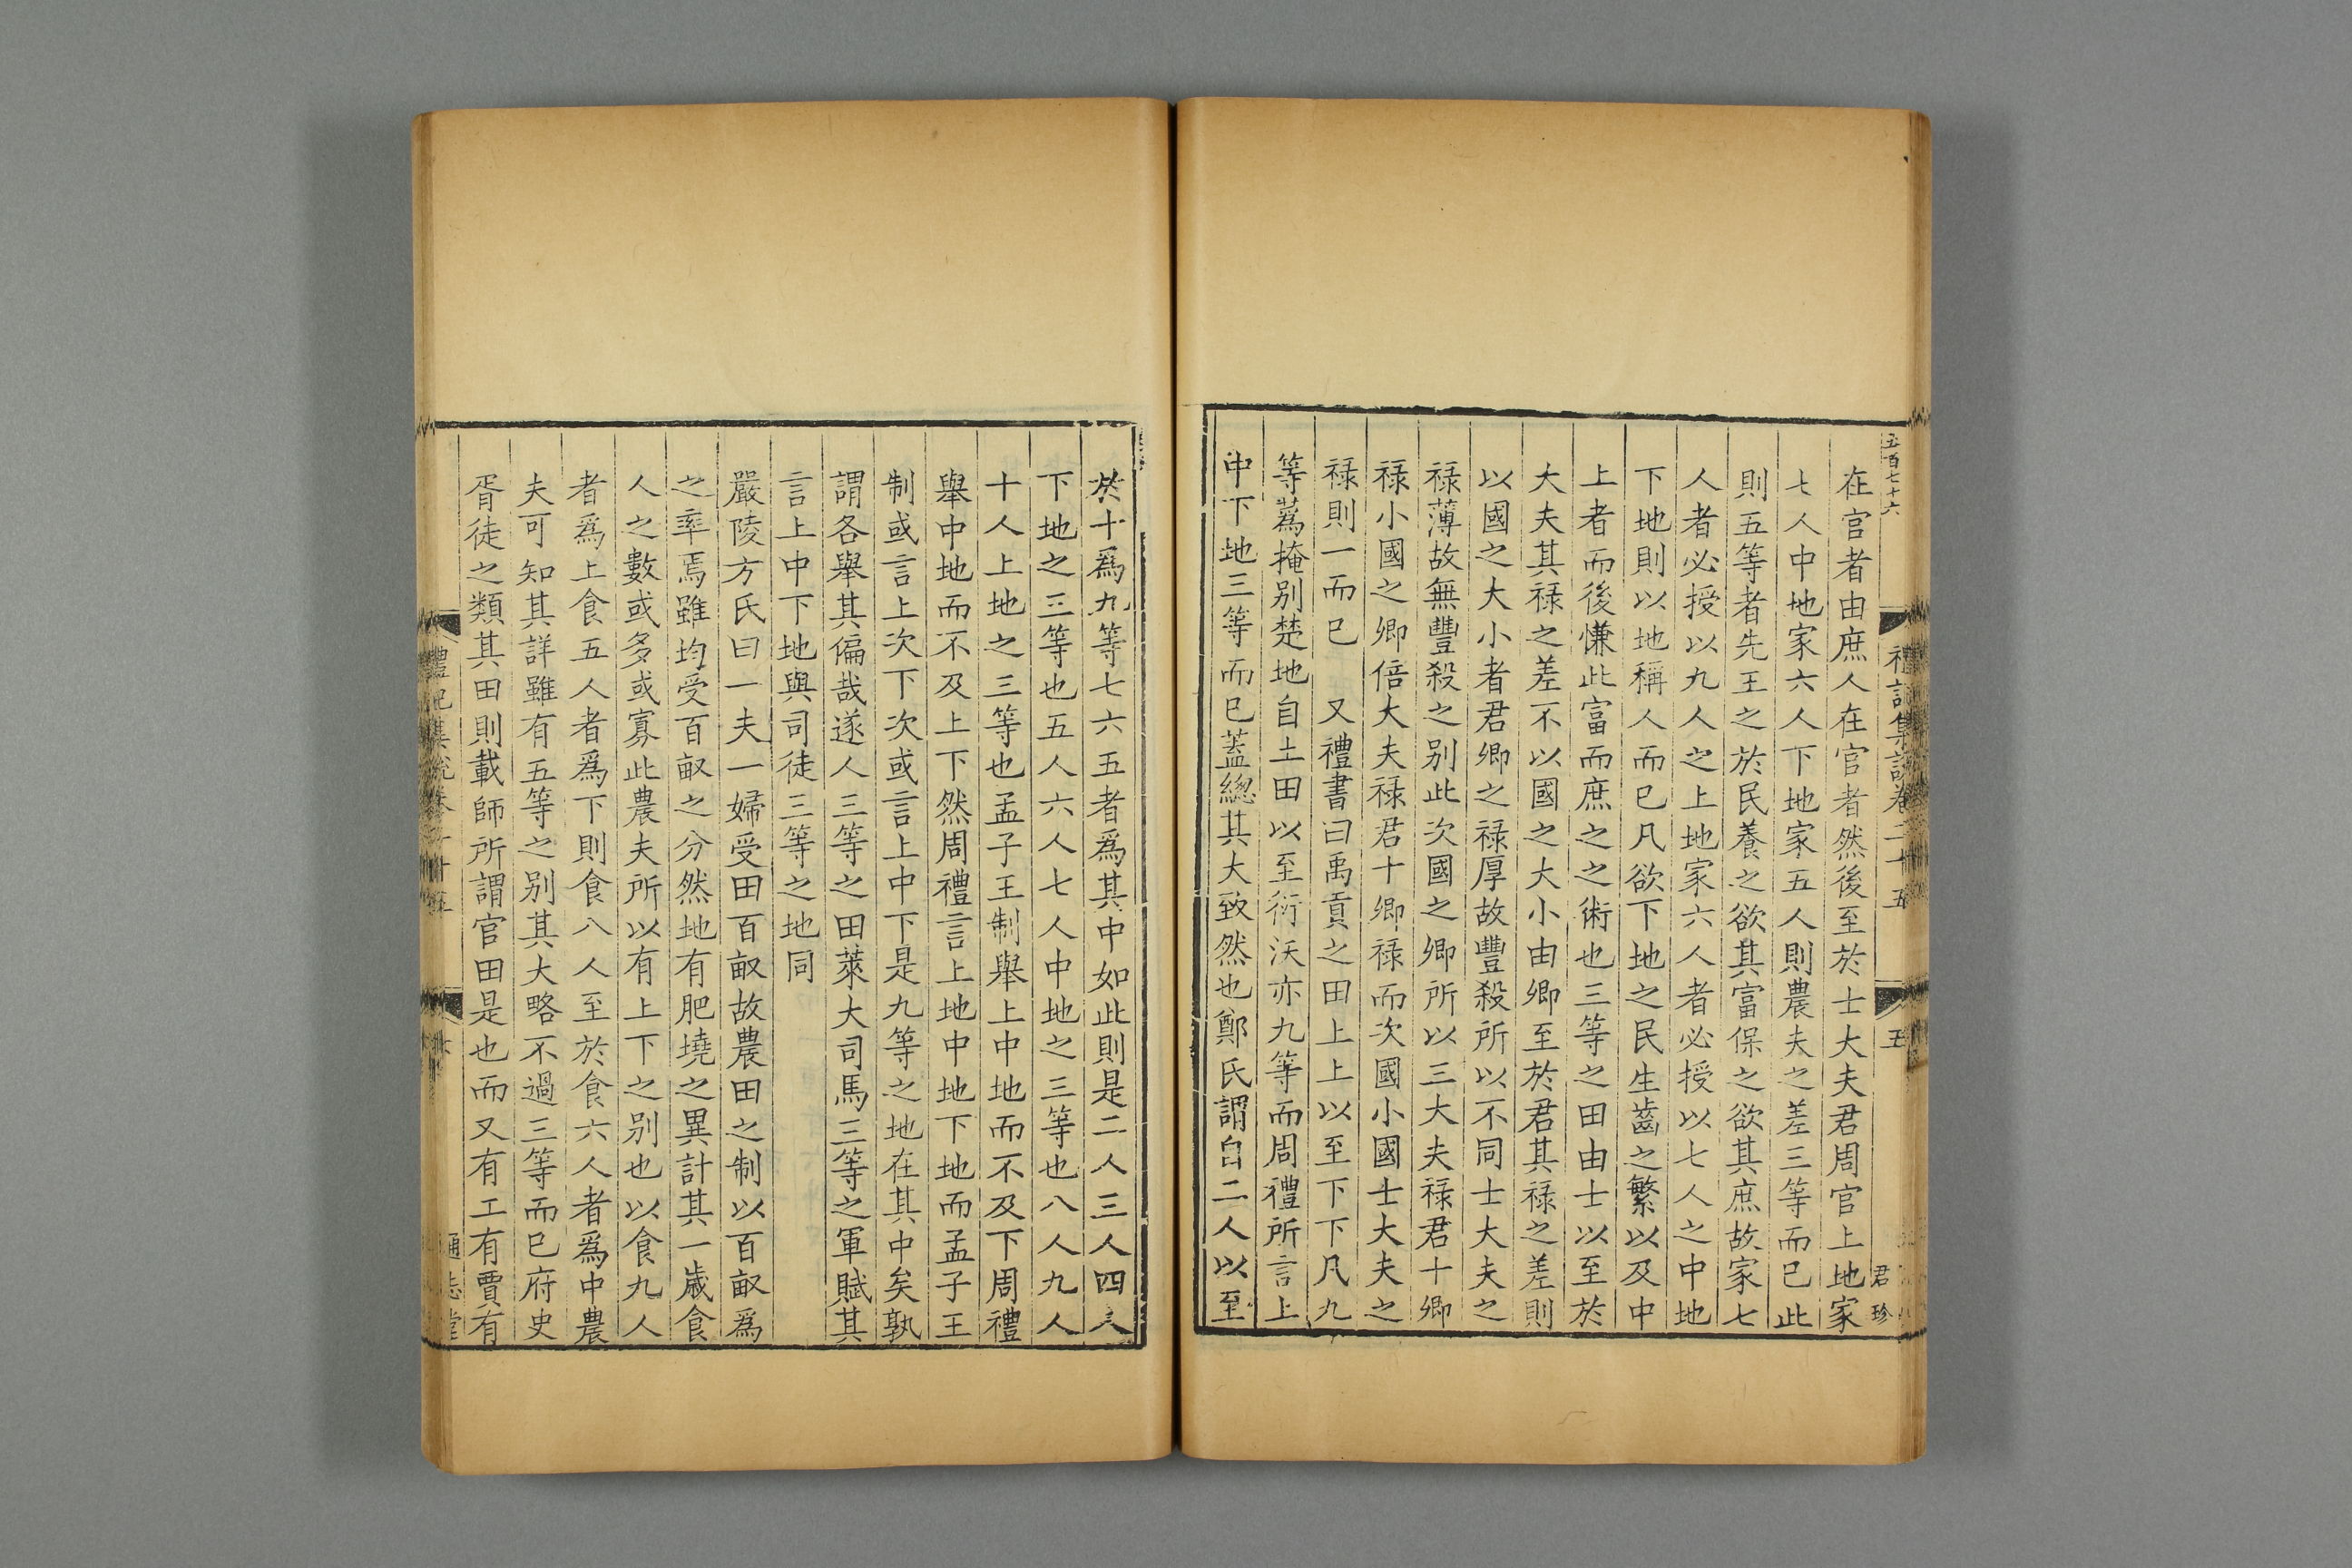 五百七十六
禮記集說卷二十五
五
君珍
在官者由庶人在官者然後至於士大夫君周官上地家
七人中地家六人下地家五人則農夫之差三等而已此
則五等者先王之於民養之欲其富保之欲其庶故家七
人者必授以九人之上地家六人者必授以七人之中地
下地則以地稱人而已凡欲下地之民生齒之繁以及中
上者而後慊此富而庶之之術也三等之田由士以至於
大夫其祿之差不以國之大小由卿至於君其祿之差則
以國之大小者君卿之祿厚故豐殺所以不同士大夫之
祿薄故無豐殺之别此次國之卿所以三大夫祿君十卿
祿小國之卿倍大夫祿君十卿祿而次國小國士大夫之
祿則一而已　又禮書曰禹貢之田上上以至下下凡九
等蔿掩别楚地自土田以至衍沃亦九等而周禮所言上
中下地三等而已蓋總其大致然也鄭氏謂自二人以至
於十爲九等七六五者爲其中如此則是二人三人四人
下地之三等也五人六人七人中地之三等也八人九人
十人上地之三等也孟子王制舉上中地而不及下周禮
舉中地而不及上下然周禮言上地中地下地而孟子王
制或言上次下次或言上中下是九等之地在其中矣孰
謂各舉其偏哉遂人三等之田萊大司馬三等之軍賦其
言上中下地與司徒三等之地同
嚴陵方氏曰一夫一婦受田百畝故農田之制以百畝爲
之率焉雖均受百畝之分然地有肥墝之異計其一歲食
人之數或多或寡此農夫所以有上下之别也以食九人
者爲上食五人者爲下則食八人至於食六人者爲中農
夫可知其詳雖有五等之别其大略不過三等而已府史
胥徒之類其田則載師所謂官田是也而又有工有賈有
禮記集說卷二十五
通志堂